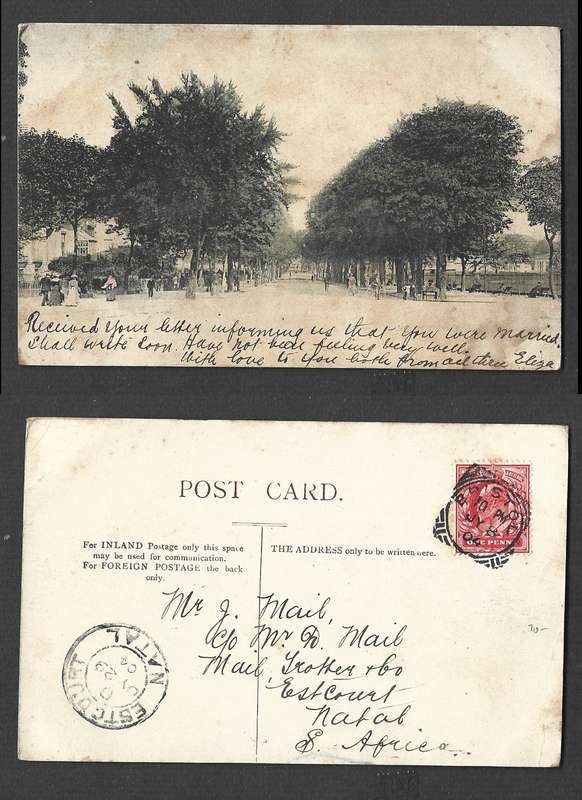 Received your letter informing us that you were married.
Shall write soon. Have not been feeling very well.
With love to you both from all here Eliza
POST CARD.
For INLAND Postage only this space
may be used for communication.
For FOREIGN POSTAGE the back
only.
THE ADDRESS only to be written here.
ONE PENNY
BRISTOL
Mr J. Mail,
C/o Mr D. Mail
Mail, Trotter & Co
Estcourt
Natal
S. Africa.
ESTCOURT
NATAL